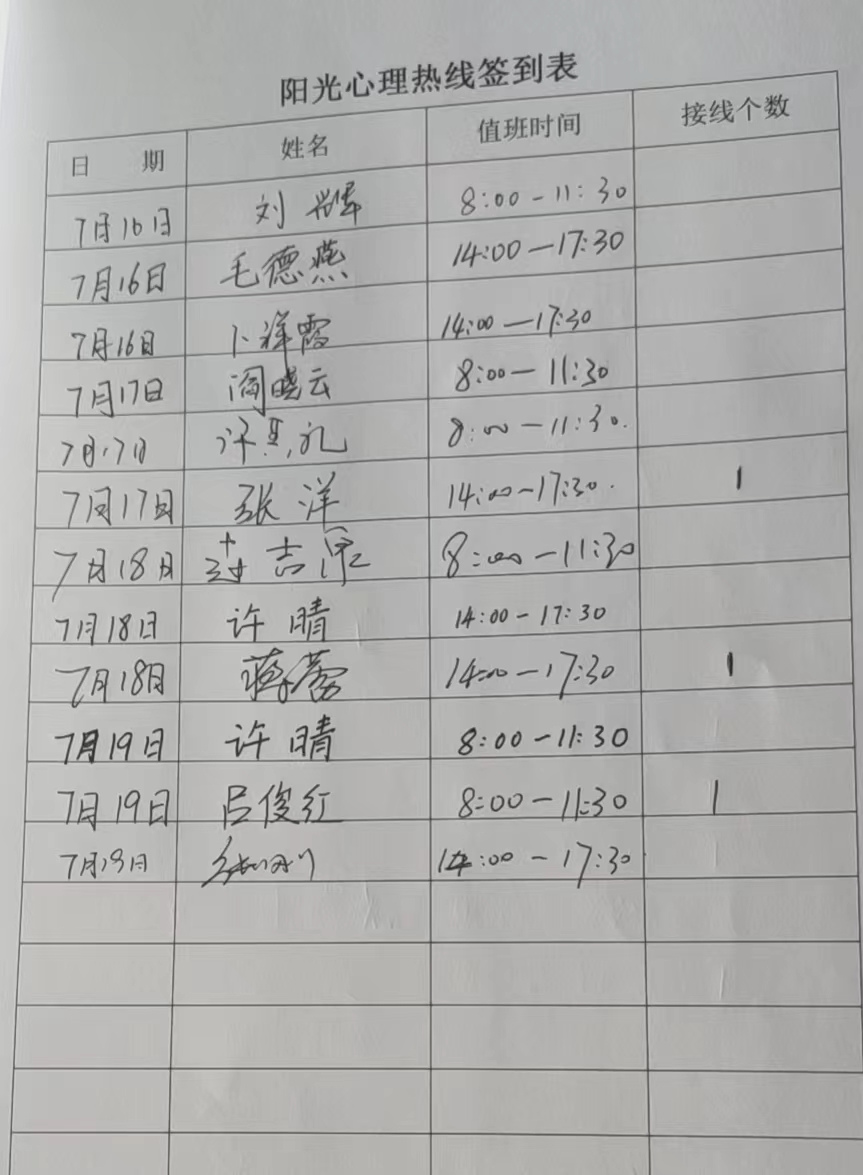 阳光心理热线签到表
日 期 姓名 值班时间 接线个数
7月16日 刘 8:00-11:30
7月16日 毛德燕 14:00-17:30
7月16日 卜祥霞 14:00-17:30
7月17日 阎晓云 8:00-11:30
7月17日 许 礼 8:00-11:30.
7月17日 张洋 14:00-17:30. 1
7月18日 吉 8:00-11:30
7月18日 许晴 14:00-17:30
7月18日 蒋 14:00-17:30 1
7月19日 许晴 8:00-11:30
7月19日 吕俊红 8:00-11:30 1
7月19日 14:00-17:30